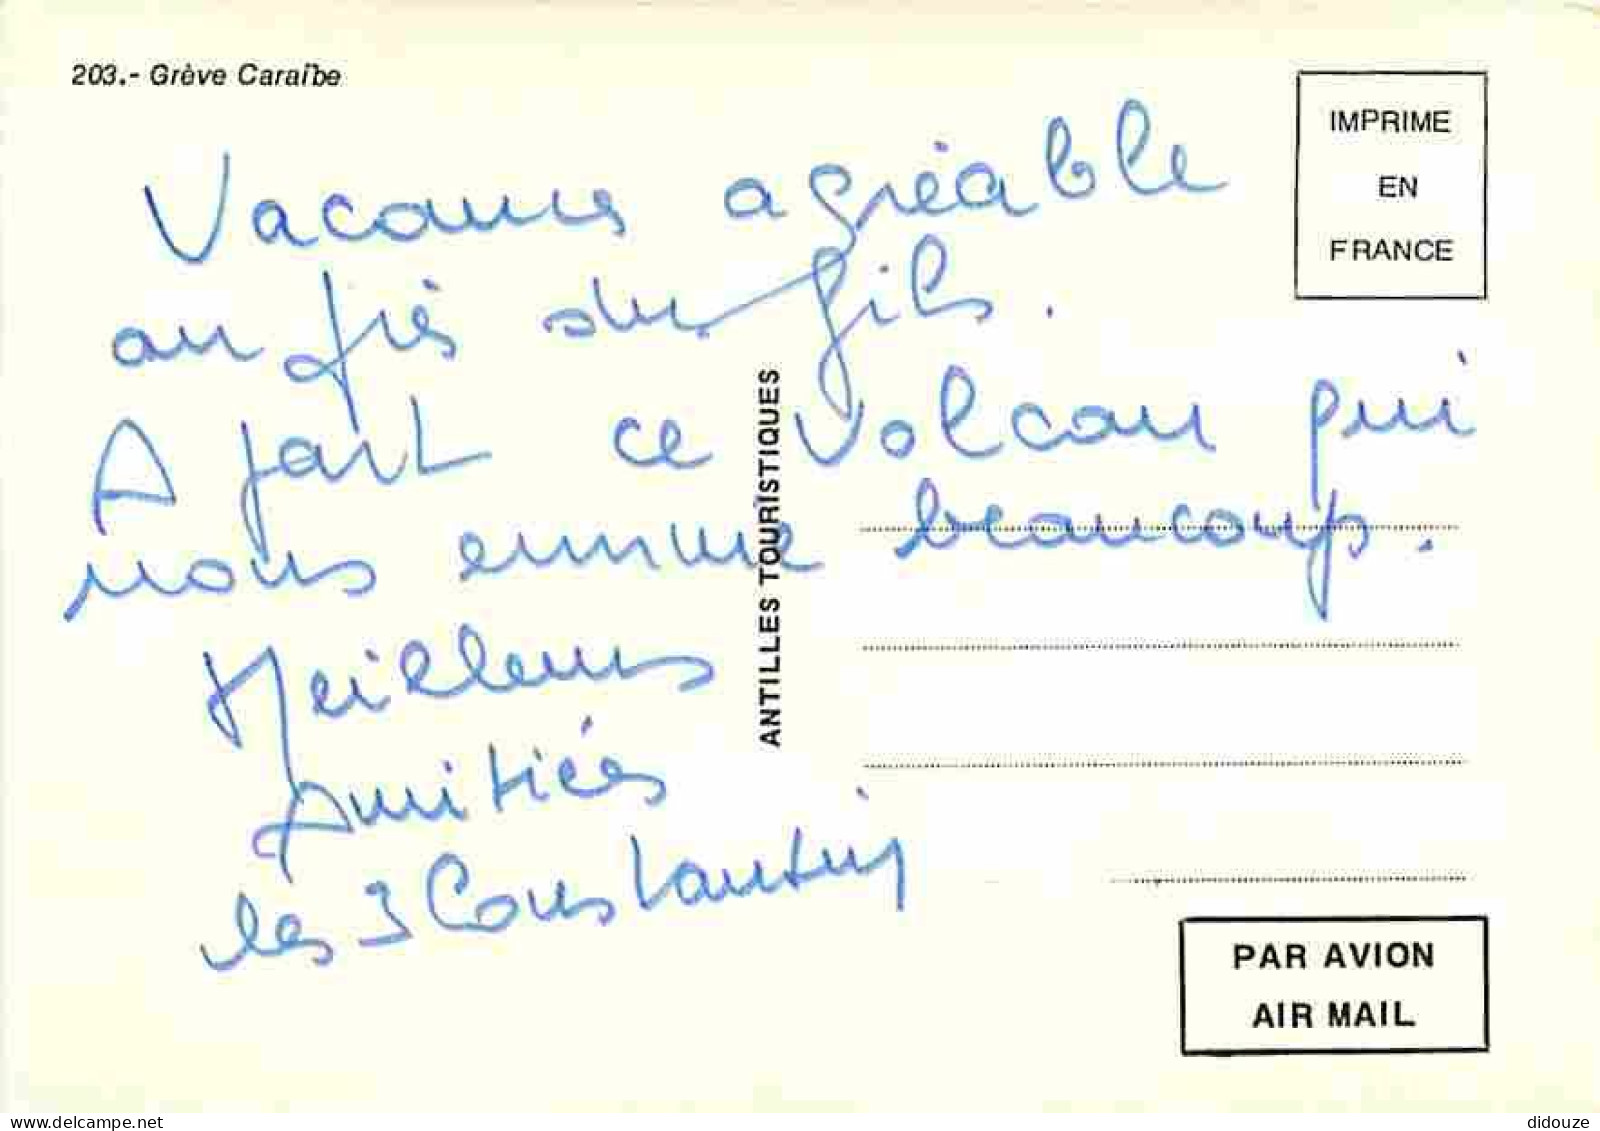 203.- Grève Caraïbe
IMPRIME
EN
FRANCE
Vacances agréable
au près du fils.
A part ce volcan qui
nous ennuie beaucoup.
Meilleurs
Amitiés
les 3 Constantin
ANTILLES TOURISTIQUES
PAR AVION
AIR MAIL
delcampe.net
didouze